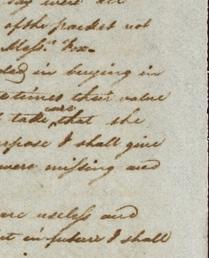 say were all
of the packet not
Messrs. Fox.
ded in buying in
times their value
t take care that she
purpose I shall give
were missing and
are useless and
t in future I shall